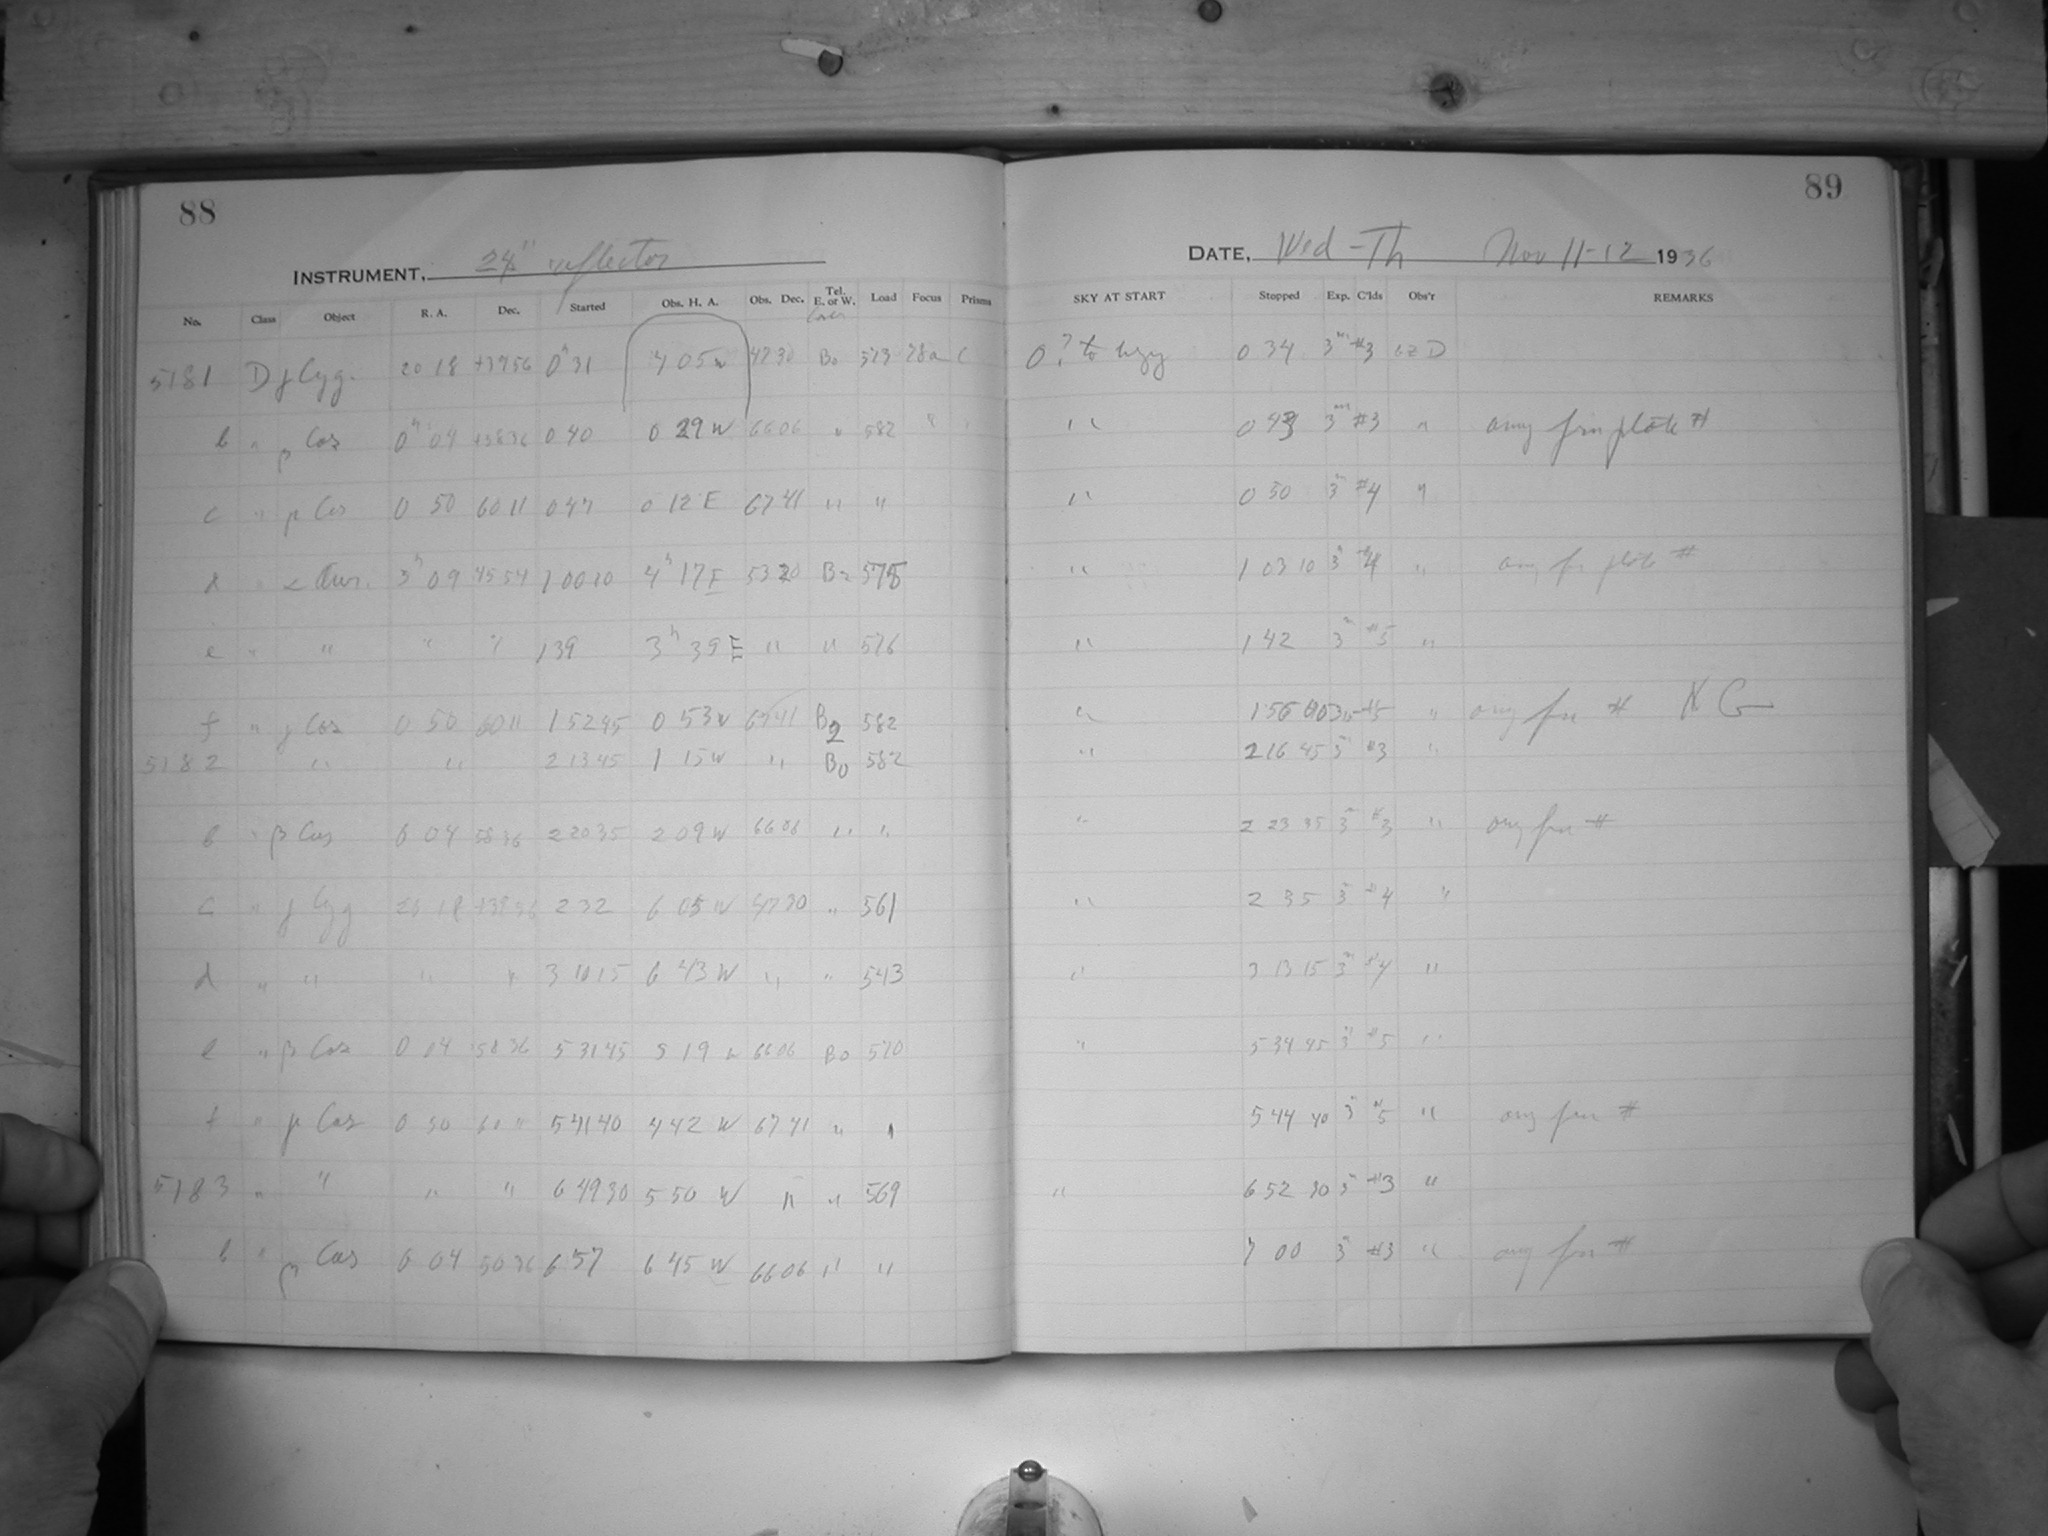 88
89
INSTRUMENT, 24" reflector
DATE, Wed - Th Nov 11-12 1936
No. Class Object R. A. Dec. Started Obs. H. A. Obs. Dec. Tel. E. or W. Load Focus Prisms
SKY AT START Stopped Exp. C'lds Obs'r REMARKS
5181 D γ Cyg. 20 18 +3956 0h 31 4 05 W 4730 B0 573 78a C 0? to hzy 0 34 3m #3 D
b " β Cas 0h 04 +5836 0 40 0 29 W 6606 " 582 " " 0 43 3m #3 " plate #
c " γ Cas 0 50 6011 0 47 0 12 E 6741 " " " 0 50 3m #4 "
d " α Aur. 3h 09 4554 1 00 10 4h 17 E 5320 B2 575 " 1 03 10 3m #4 " plate #
e " " " " 1 39 3h 39 E " " 576 " 1 42 3m #5 "
f " γ Cas 0 50 6011 1 52 45 0 53 W 6741 B2 582 " 1 56 #5 " #
5182 " " 2 13 45 1 15 W " B0 582 " 2 16 45 3m #3 "
b " β Cas 0 04 5836 2 20 35 2 09 W 6606 " " " 2 23 35 3m #3 " #
c " γ Cyg 20 18 +3956 2 32 6 05 W 4730 " 561 " 2 35 3m #4 "
d " " " " 3 10 15 6 43 W " " 543 " 3 13 15 3m #4 "
e " β Cas 0 04 5836 5 31 45 5 19 W 6606 B0 570 " 5 34 45 3m #5 "
f " γ Cas 0 50 60 11 5 41 40 4 42 W 6741 " " 5 44 40 3m #5 " #
5183 " " " " 6 49 30 5 50 W " " 569 " 6 52 30 3m #3 "
b " β Cas 0 04 5836 6 57 6 45 W 6606 " " 7 00 3m #3 " #